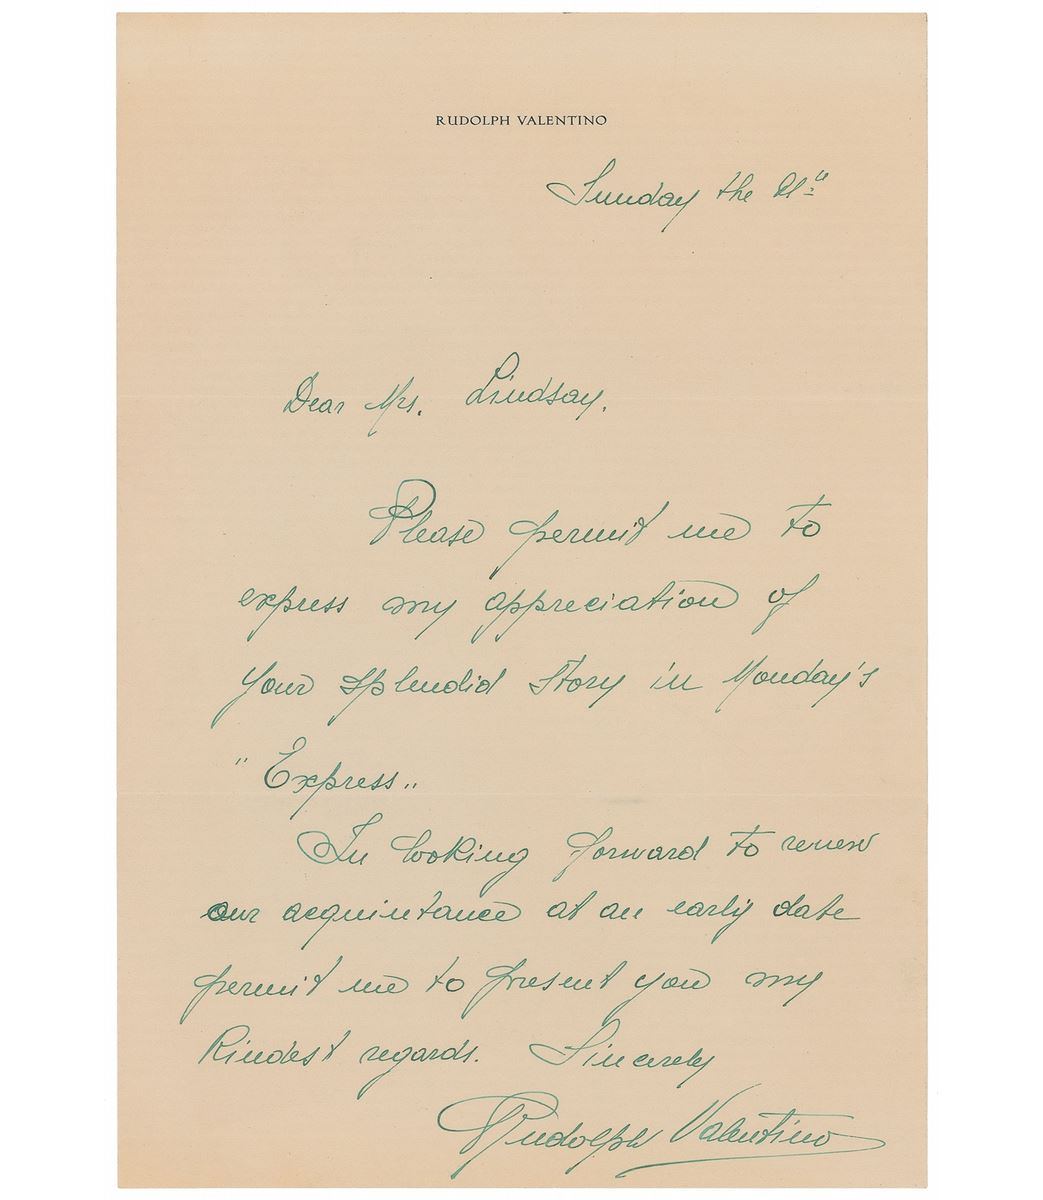 RUDOLPH VALENTINO
Sunday the 21st
Dear Mrs. Lindsay.
Please permit me to
express my appreciation of
your splendid story in Monday's
"Express"
In looking forward to renew
our acquintance at an early date
permit me to present you my
Kindest regards. Sincerely
Rudolph Valentino